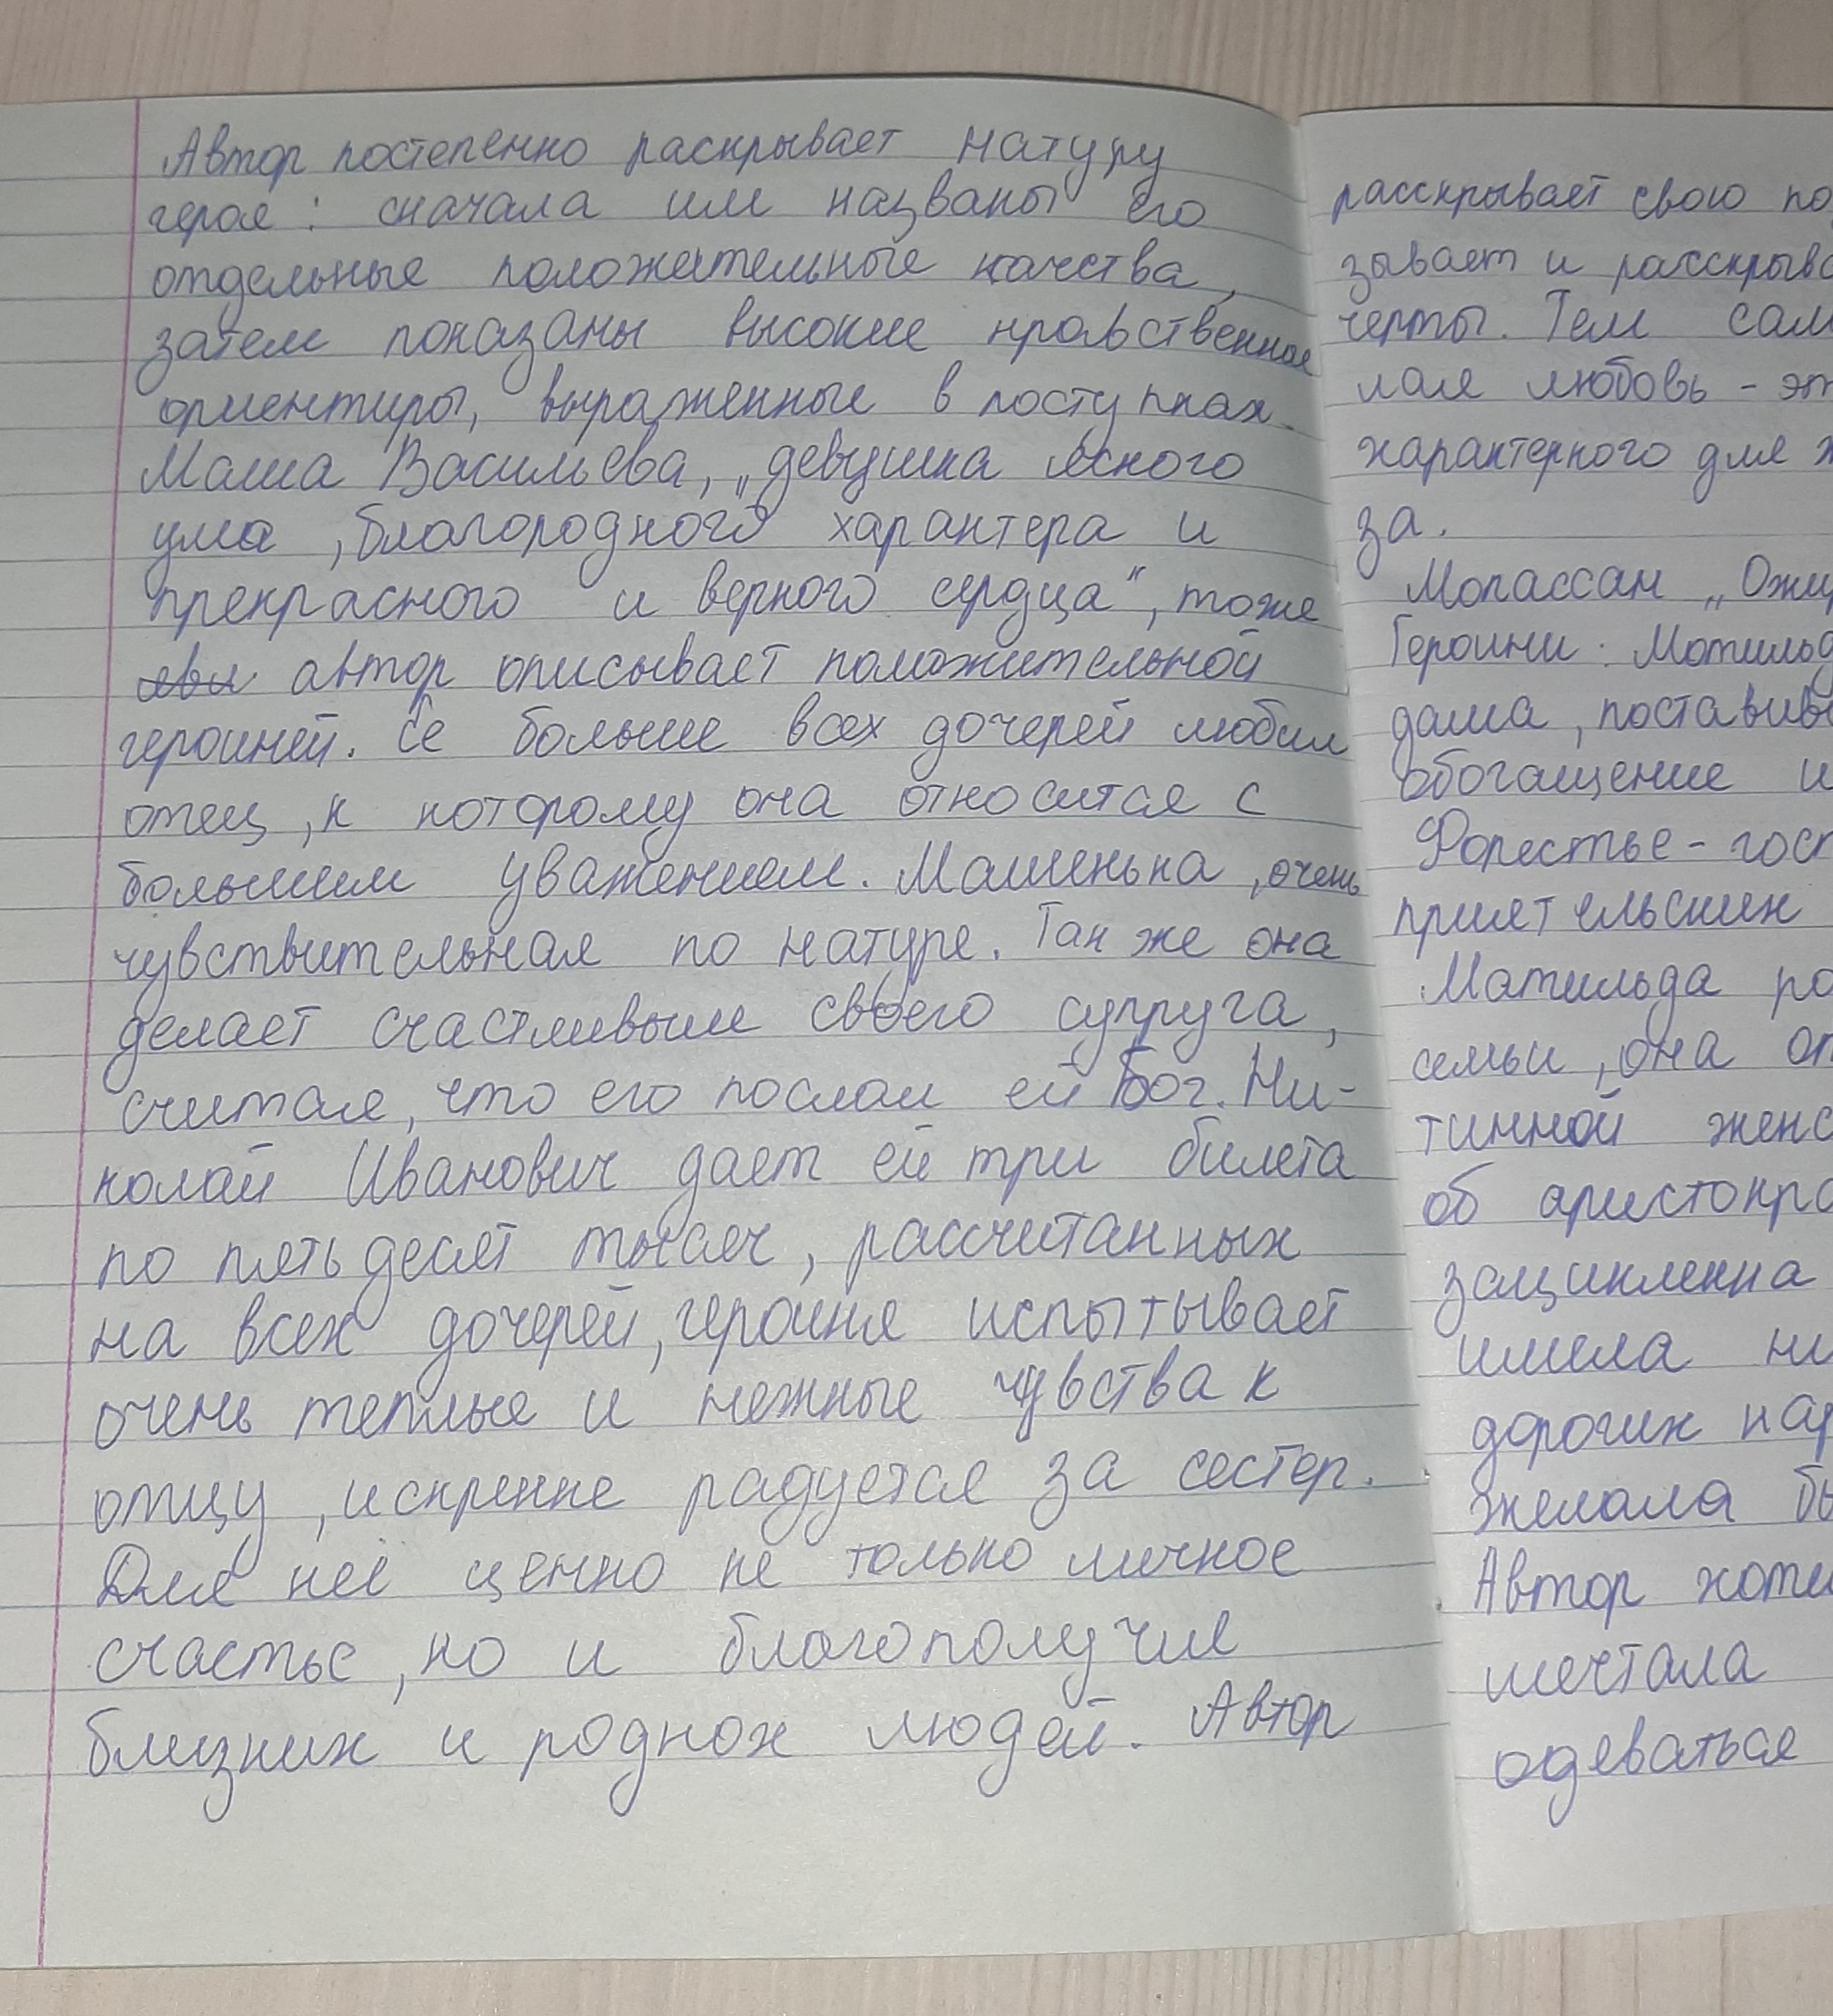 Автор постепенно раскрывает натуру
героя: сначала им названы его
отдельные положительные качества,
затем показаны высокие нравственные
ориентиры, выраженные в поступках.
Маша Васильева, „девушка ясного
ума, благородного характера и
прекрасного и верного сердца“, тоже
автор описывает положительной
героиней. Её больше всех дочерей любил
отец, к которому она относится с
большим уважением. Машенька, очень
чувствительная по натуре. Так же она
делает счастливым своего супруга,
считая, что его послал ей Бог. Ни-
колай Иванович дает ей три билета
по пятьдесят тысяч, рассчитанных
на всех дочерей, героиня испытывает
очень теплые и нежные чувства к
отцу, искренне радуется за сестер.
Для неё ценно не только личное
счастье, но и благополучие
близких и родных людей. Автор
расскрывает свою по
зывает и расскрыва
черты. Тем сам
мая любовь - эт
характерного для ж
за.
Мопассан „Ожер
Героини: Матильд
дама, поставив
обогащение и
Форестье - гос
приятельских
Матильда ро
семьи, она от
тинной женс
об аристокра
зациклена
имела ни
дорогих нар
желала бы
Автор хоте
мечтала
одеваться